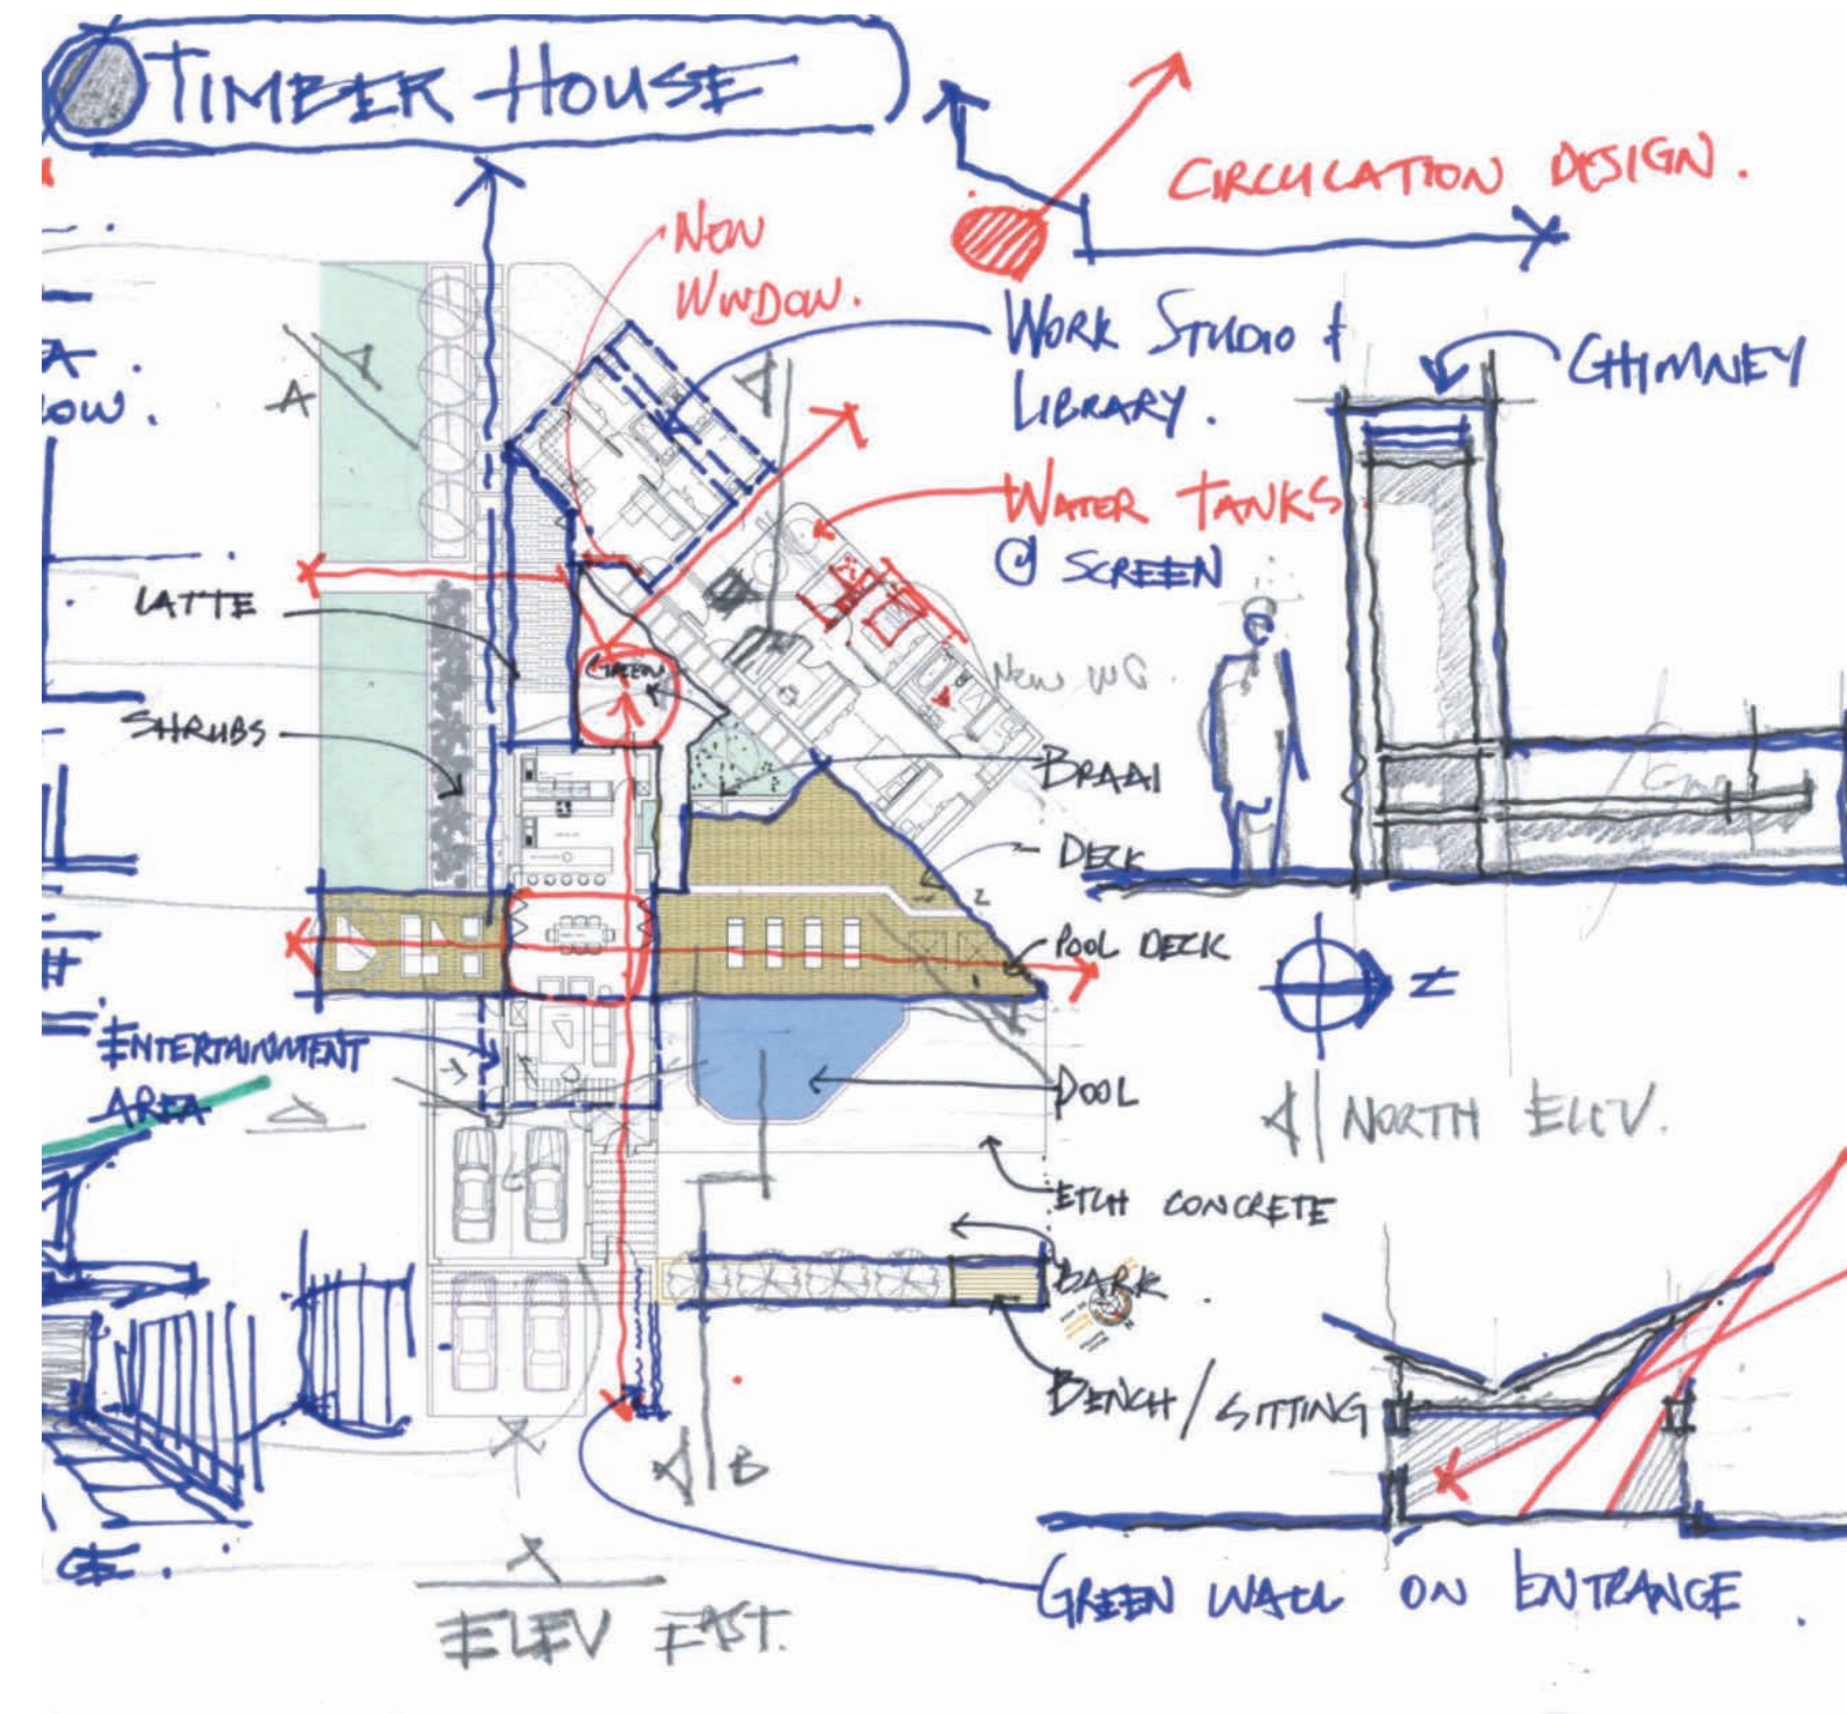 TIMBER HOUSE
CIRCULATION DESIGN.
NEW
WINDOW.
WORK STUDIO &
LIBRARY.
CHIMNEY
A.
OW.
A
WATER TANKS
@ SCREEN
LATTE
GREEN
NEW WC.
SHRUBS
BRAAI
DECK
POOL DECK
N
ENTERTAINMENT
AREA
POOL
NORTH ELEV.
ETCH CONCRETE
BARK
BENCH / SITTING
B
CE.
GREEN WALL ON ENTRANCE.
ELEV EAST.